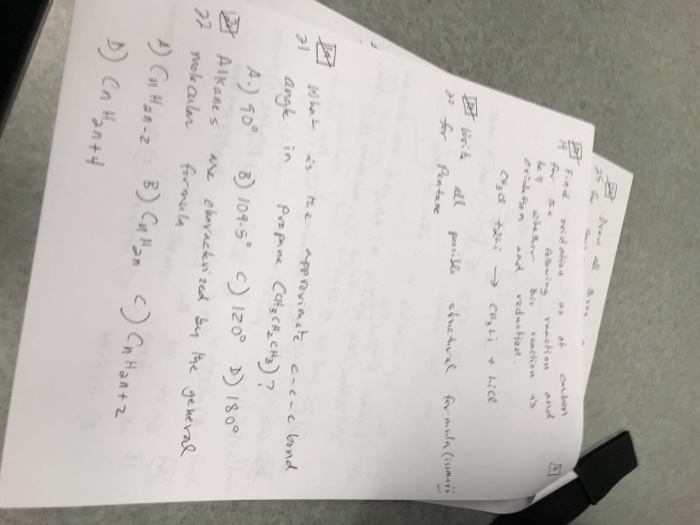 25 for Draw all
19 Find oxidation no of carbon
for the following reaction and
tell whether this reaction is
oxidation and reduction.
CH3Cl + 2Li → CH3Li + LiCl
20 Write all possible structural formula (isomers
for Pentane
21 What is the approximate C-C-C bond
angle in propane (CH3CH2CH3)?
A.) 90° B) 109.5° C) 120° D) 180°
22 Alkanes are characterized by the general
molecular formula
A) CnH2n-2 B) CnH2n C.) CnH2n+2
D) CnH2n+4